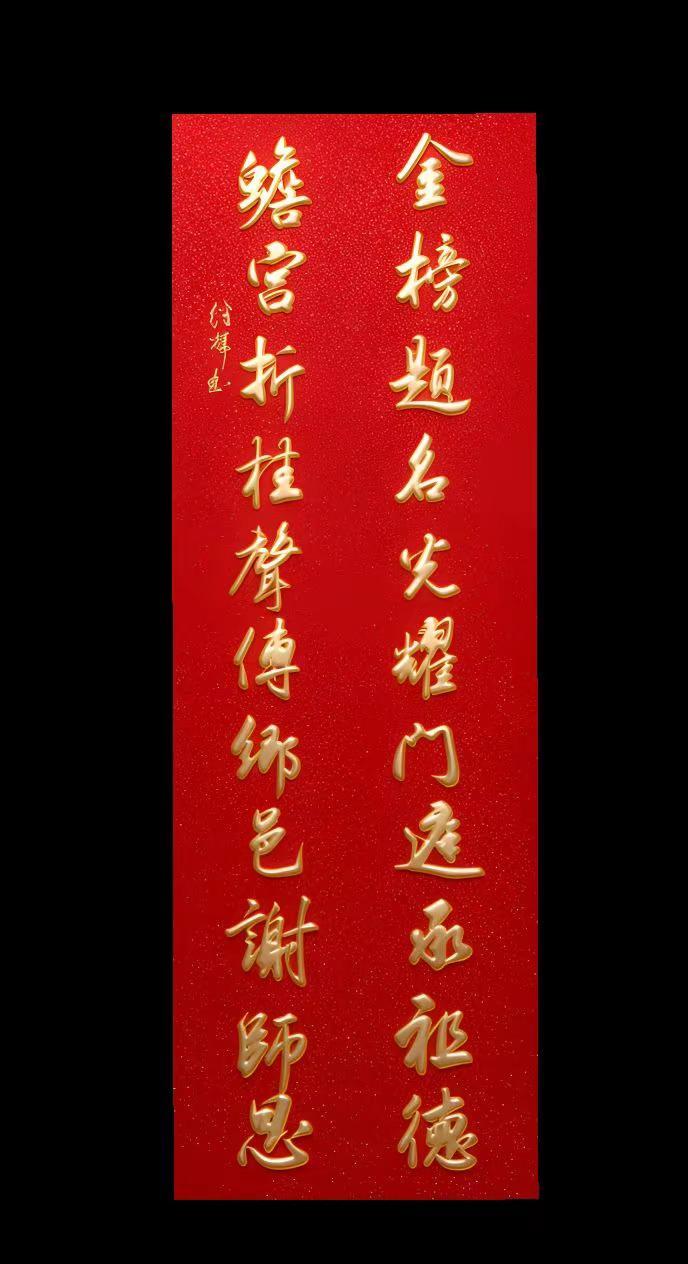 金榜題名光耀門庭承祖德
蟾宮折桂聲傳鄉邑謝師恩